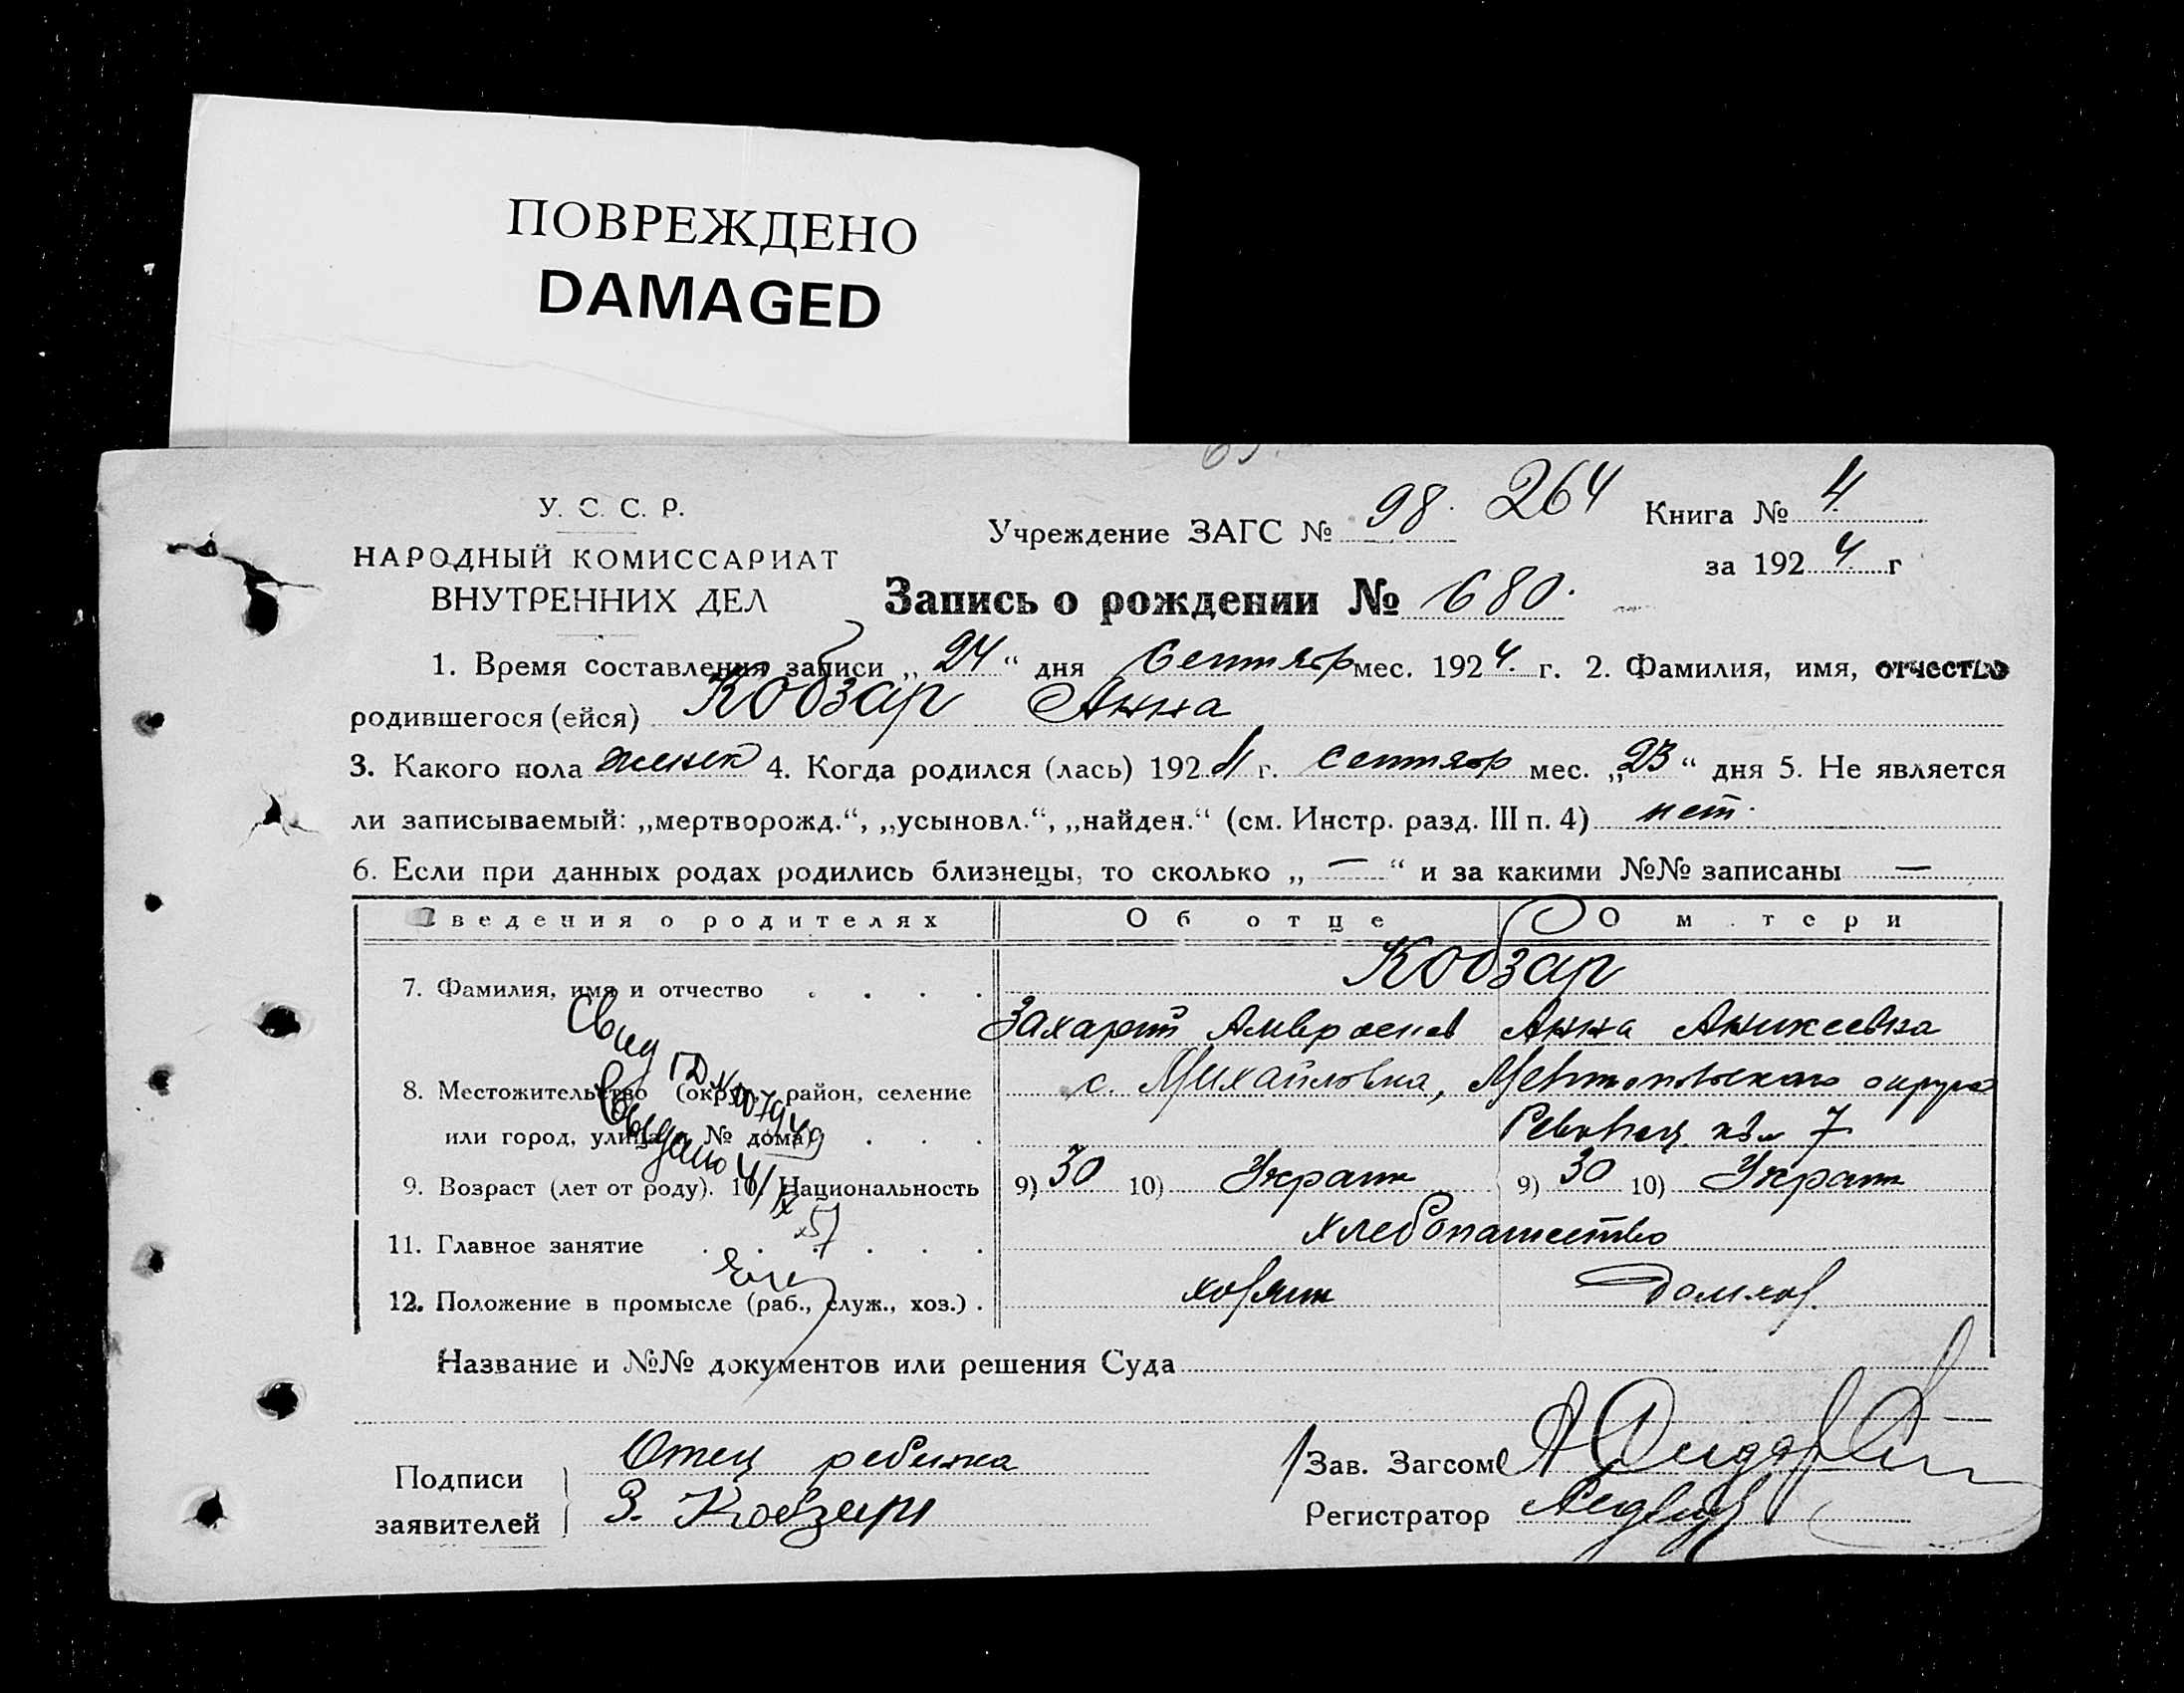 ПОВРЕЖДЕНО
DAMAGED
У. С. С. Р.
НАРОДНЫЙ КОМИССАРИАТ
ВНУТРЕННИХ ДЕЛ
Учреждение ЗАГС № 98. 264
Книга № 4
за 1924 г
Запись о рождении № 680.
1. Время составления записи „24“ дня Сентябр мес. 1924. г. 2. Фамилия, имя, отчество
родившегося (ейся) Кобзар Анна
3. Какого пола женск 4. Когда родился (лась) 1924 г. Сентябр мес. „23“ дня 5. Не является
ли записываемый: „мертворожд.“, „усыновл.“, „найден.“ (см. Инстр. разд. III п. 4) нет.
6. Если при данных родах родились близнецы, то сколько „ — “ и за какими №№ записаны —
Сведения о родителях Об отце О м тери
7. Фамилия, имя и отчество Кобзар
Захарий Амвросиев Анна Аникеевна
8. Местожительство (округ, район, селение с. Михайловка, Мелитопольского округа
или город, улица и № дома) 7
9. Возраст (лет от роду). 10. Национальность 9) 30 10) Украин 9) 30 10) Украин
11. Главное занятие хлебопашество
12. Положение в промысле (раб., служ., хоз.) хозяин домхоз.
Свид ГД №
Выдано 4/IX 57
Название и №№ документов или решения Суда
Подписи
заявителей
Отец ребенка
З. Кобзарь
Зав. Загсом
Регистратор